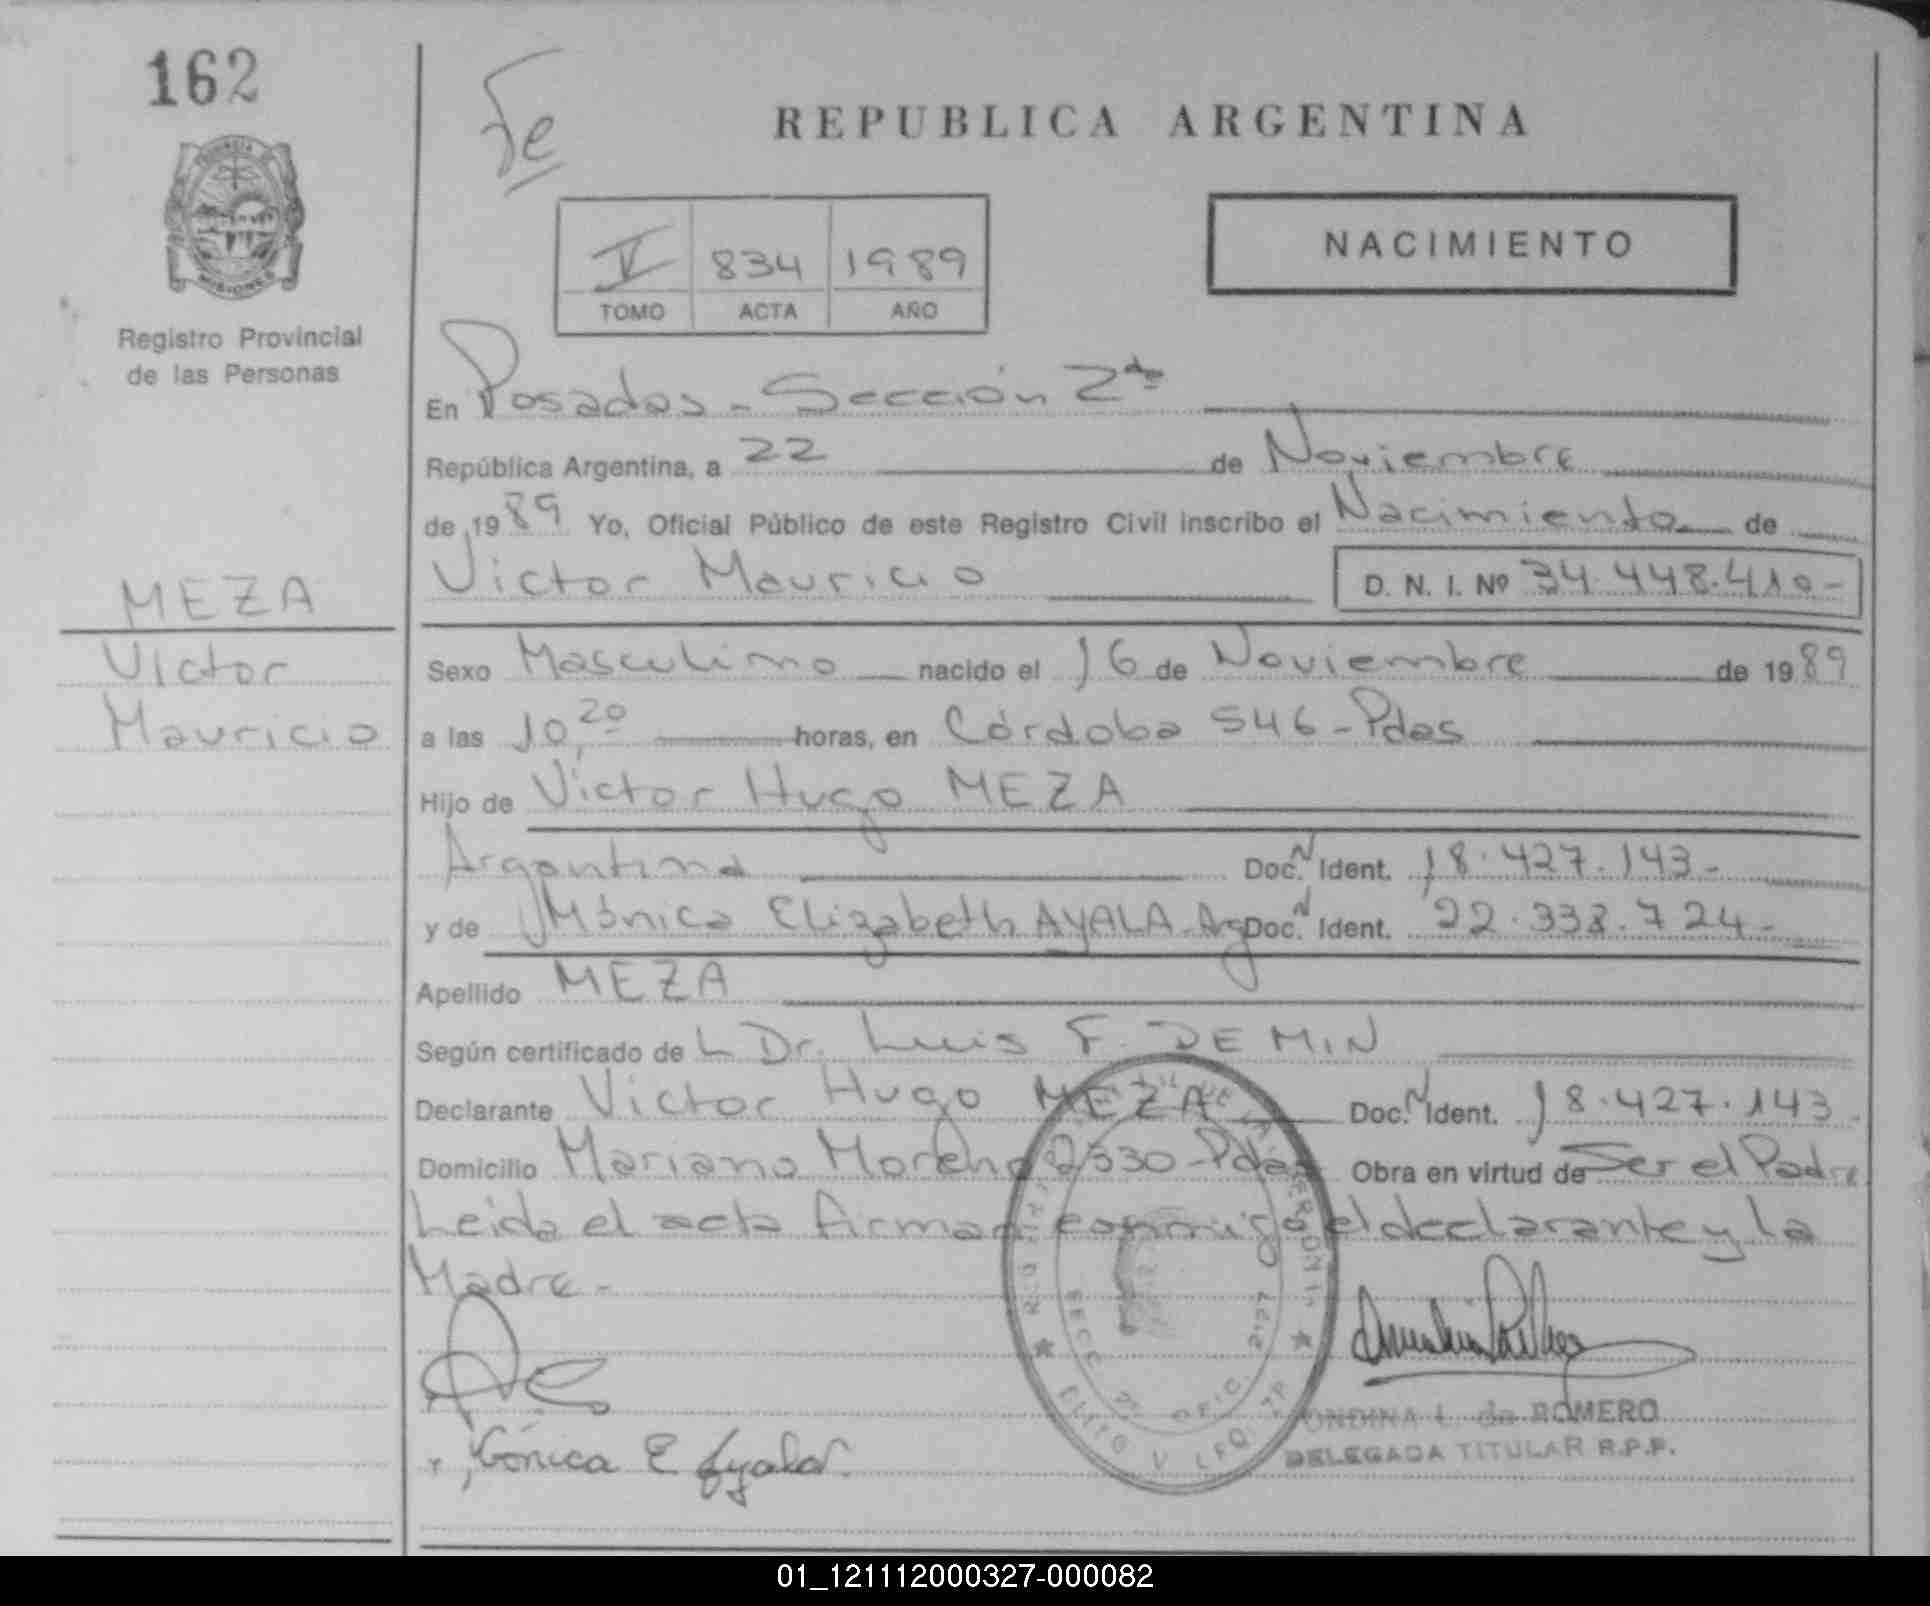 162
Fe
REPUBLICA ARGENTINA
NACIMIENTO
V 834 1989
TOMO ACTA AÑO
MISIONES
Registro Provincial
de las Personas
En Posadas - Sección 2da
República Argentina, a 22 de Noviembre
de 1989 Yo, Oficial Público de este Registro Civil inscribo el Nacimiento de
Victor Mauricio D. N. I. Nº 34.448.410-
MEZA
Victor
Mauricio
Sexo Masculino nacido el 16 de Noviembre de 1989
a las 10,20 horas, en Córdoba 546 - Pdas
Hijo de Victor Hugo MEZA
Argentino Doc. N Ident. 18.427.143-
y de Mónica Elizabeth AYALA - Arg Doc. N Ident. 22.338.724-
Apellido MEZA
Según certificado de L Dr. Luis F. DE MIN
Declarante Victor Hugo MEZA Doc. N Ident. 18.427.143-
Domicilio Mariano Moreno 2330 - Pdas Obra en virtud de Ser el Padre
Leida el acta firman conmigo el declarante y la
Madre -
Mónica E Ayala
ONDINA L. de ROMERO
DELEGADA TITULAR R.P.P.
01_121112000327-000082